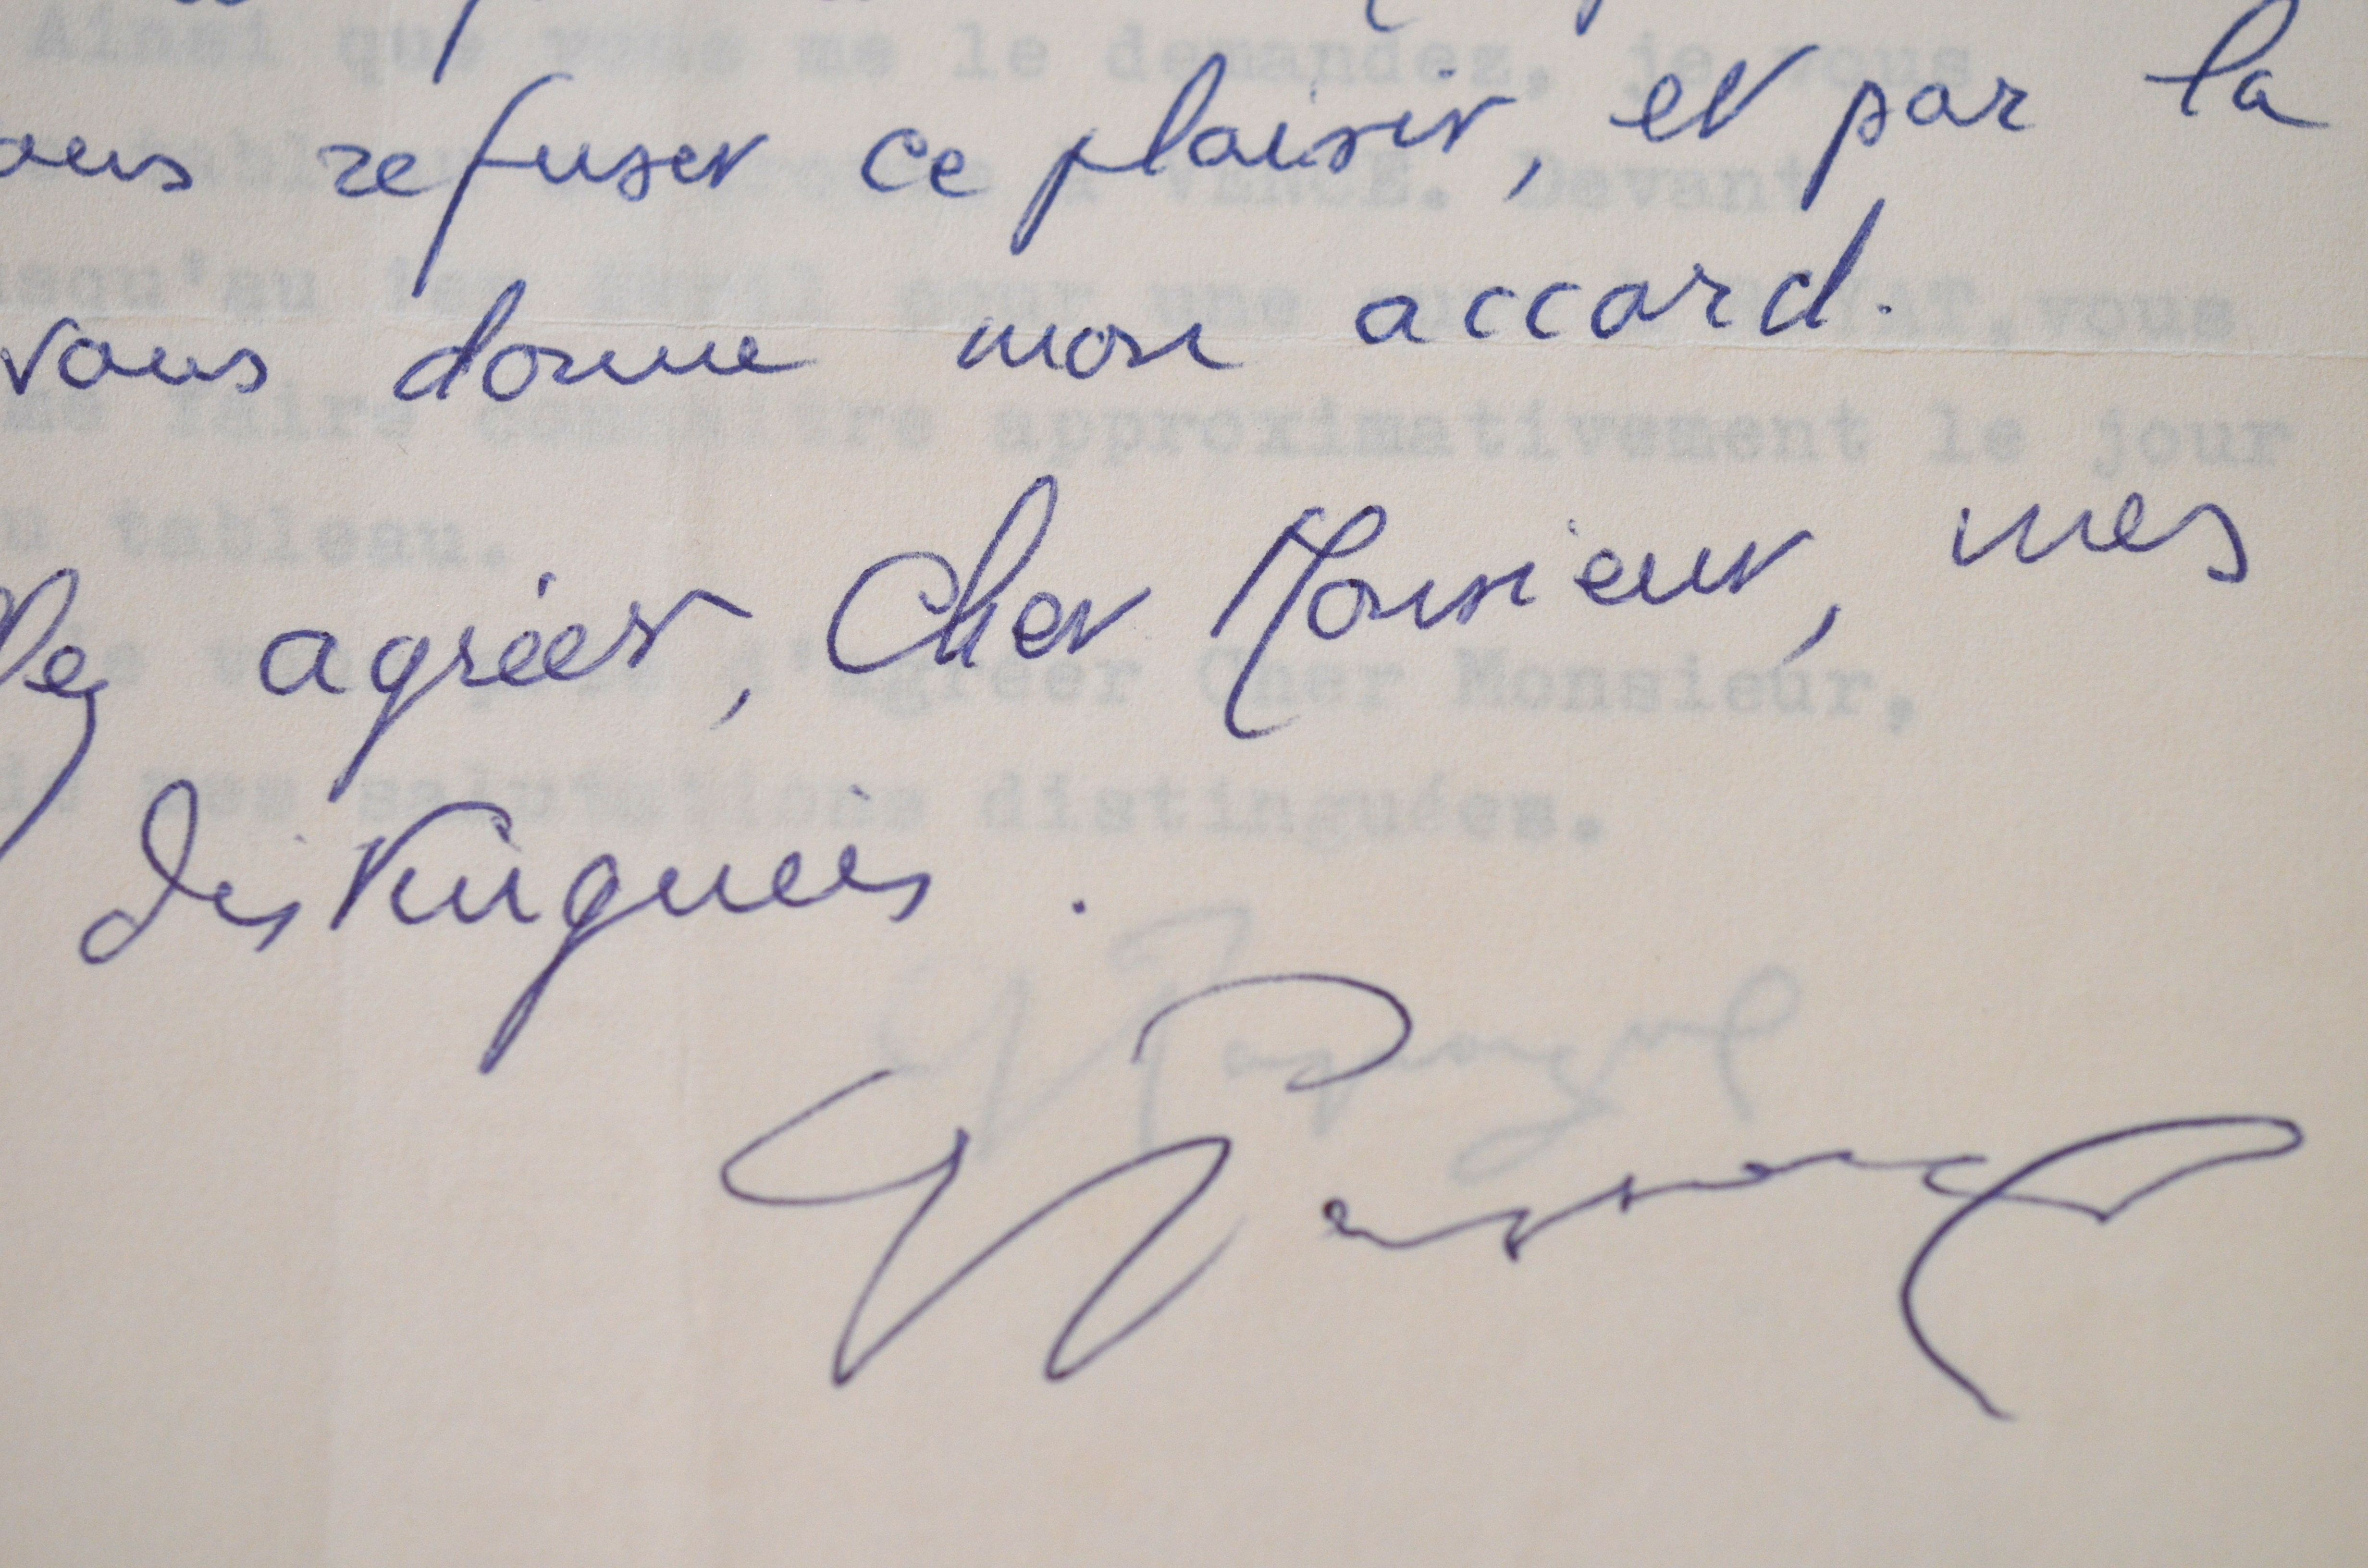 ous refuser ce plaisir, et par la
vous donne mon accord.
lez agréer, Cher Monsieur, mes
distinguées.
Ainsi que vous me le demandez, je vous
VENCE. Devant
usqu'au 1er Avril pour une YAT, vous
me faire connaitre approximativement le jour
u tableau.
d'agréer Cher Monsieur,
de mes salutations distinguées.